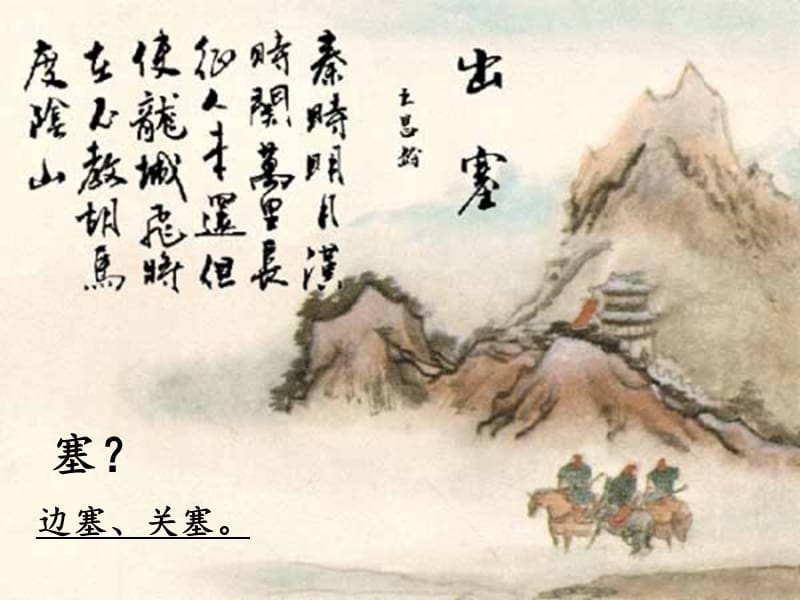 出塞
王昌龄
秦時明月漢
時関萬里長
征人未還但
使龍城飛將
在不教胡馬
度陰山
塞？
边塞、关塞。